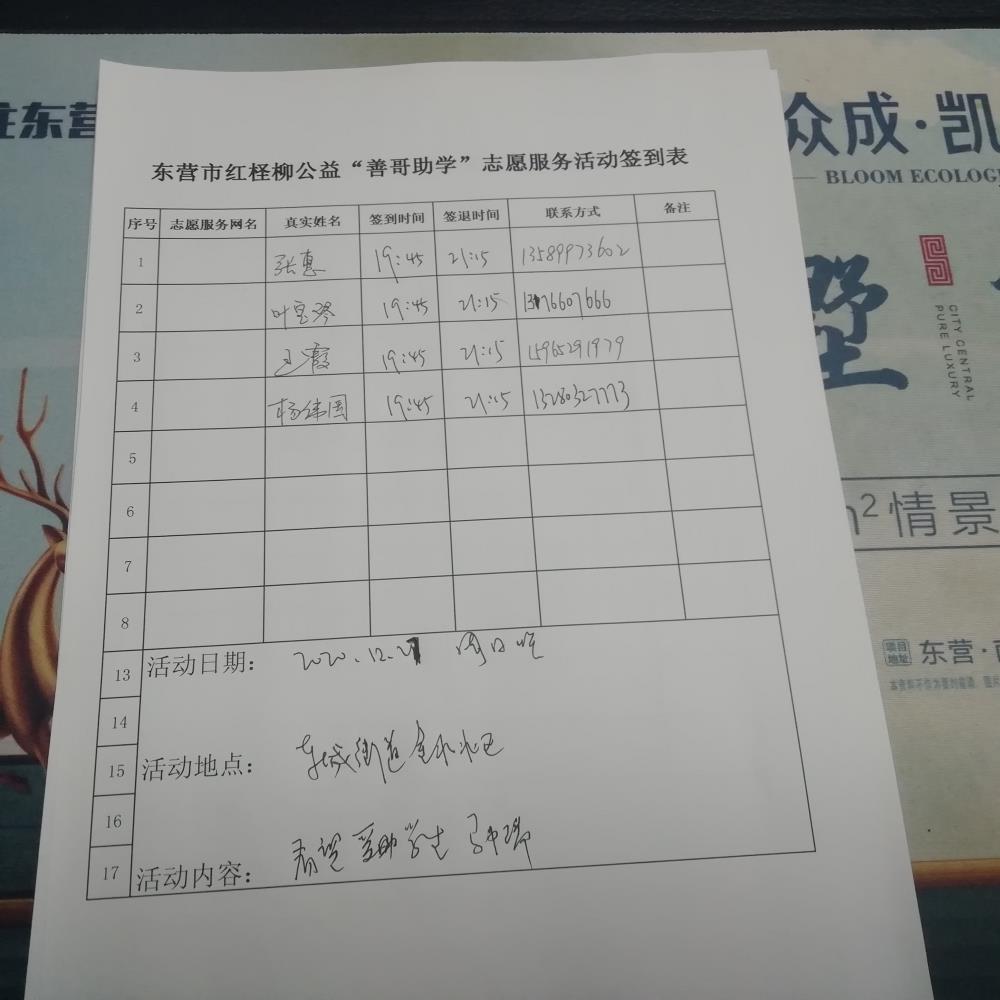 住东营
众成·凯
BLOOM ECOLOG
墅
CITY CENTRAL
PURE LUXURY
东营市红柽柳公益“善哥助学”志愿服务活动签到表
序号 志愿服务网名 真实姓名 签到时间 签退时间 联系方式 备注
1 张惠 19:45 21:15 13589973602
2 叶宝琴 19:45 21:15 13176607666
3 王霞 19:45 21:15 15965291979
4 杨纬国 19:45 21:15 13280327773
5
6
7
8
13 活动日期： 2020.12.27 周日晚
14
15 活动地点： 东城街道
16
17 活动内容： 看望受助学生
m²情景
项目地址 东营·